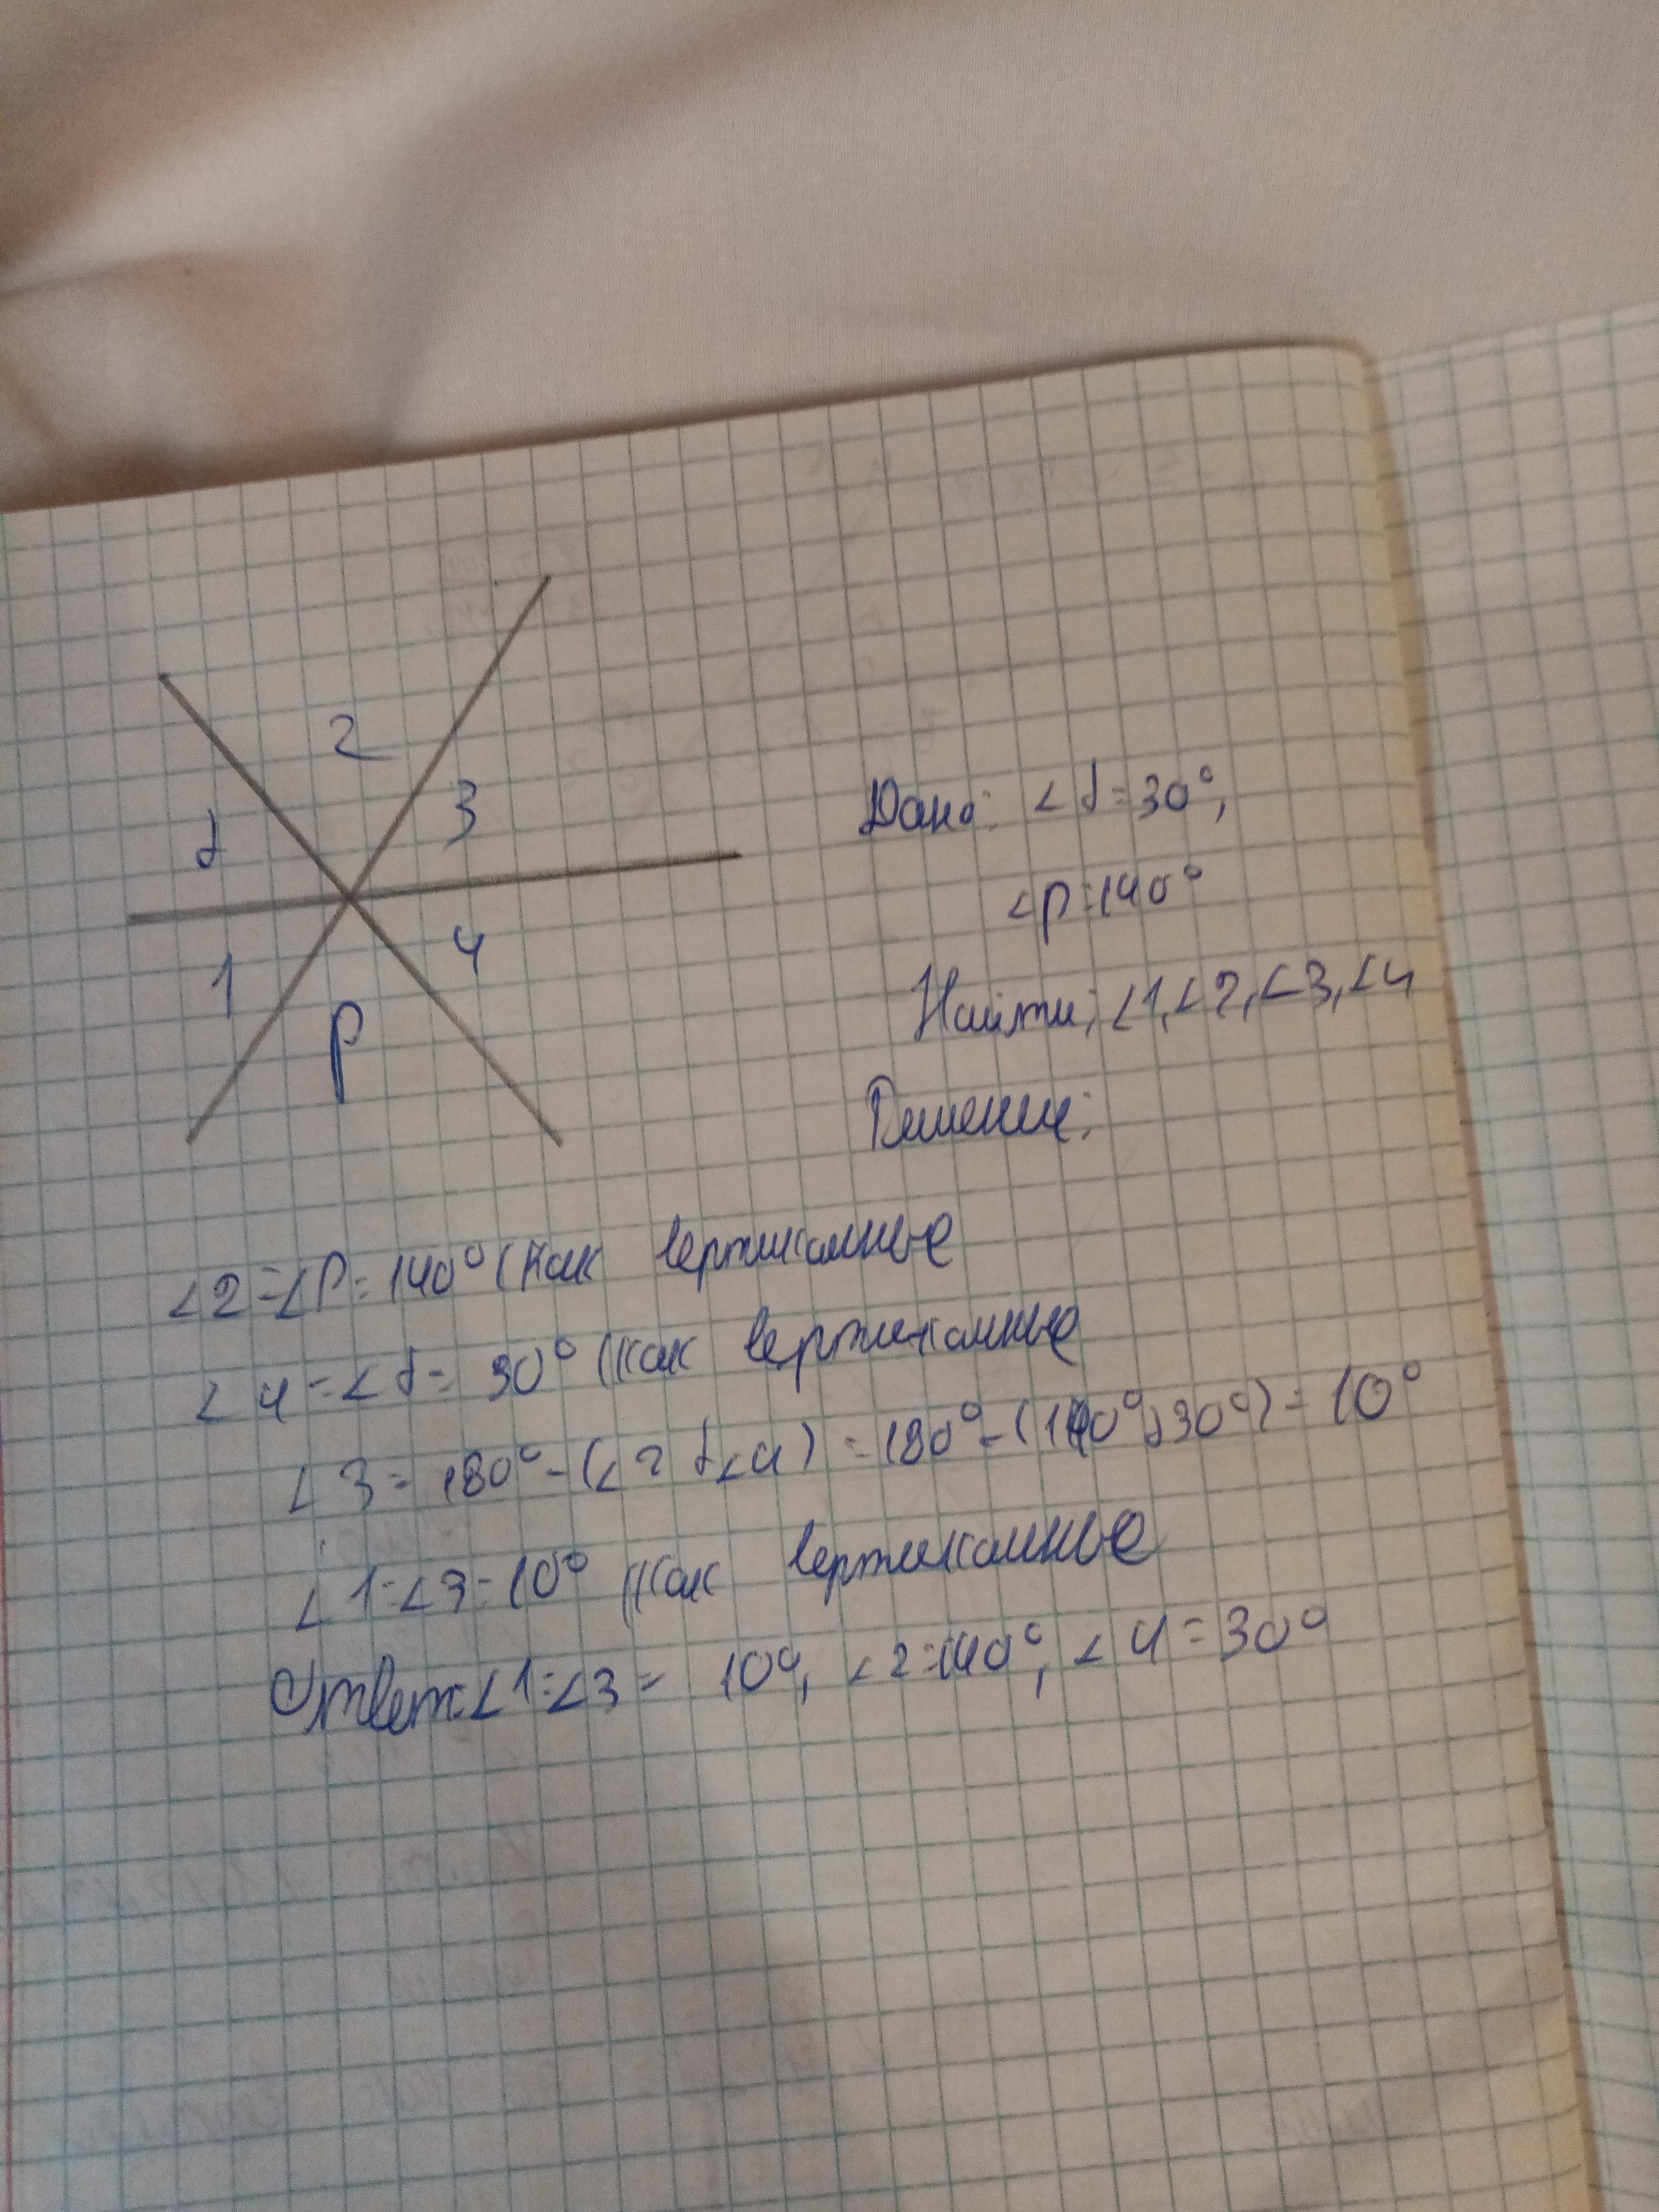 2
3
d
4
1
p
Дано: ∠d=30°,
∠p=140°
Найти: ∠1,∠2,∠3,∠4
Решение:
∠2=∠p=140° (как вертикальные
∠4=∠d=30° (как вертикальные
∠3=180°-(∠2+∠4)=180°-(140°+30°)=10°
∠1=∠3=10° (как вертикальные
Ответ: ∠1=∠3=10°, ∠2=140°, ∠4=30°